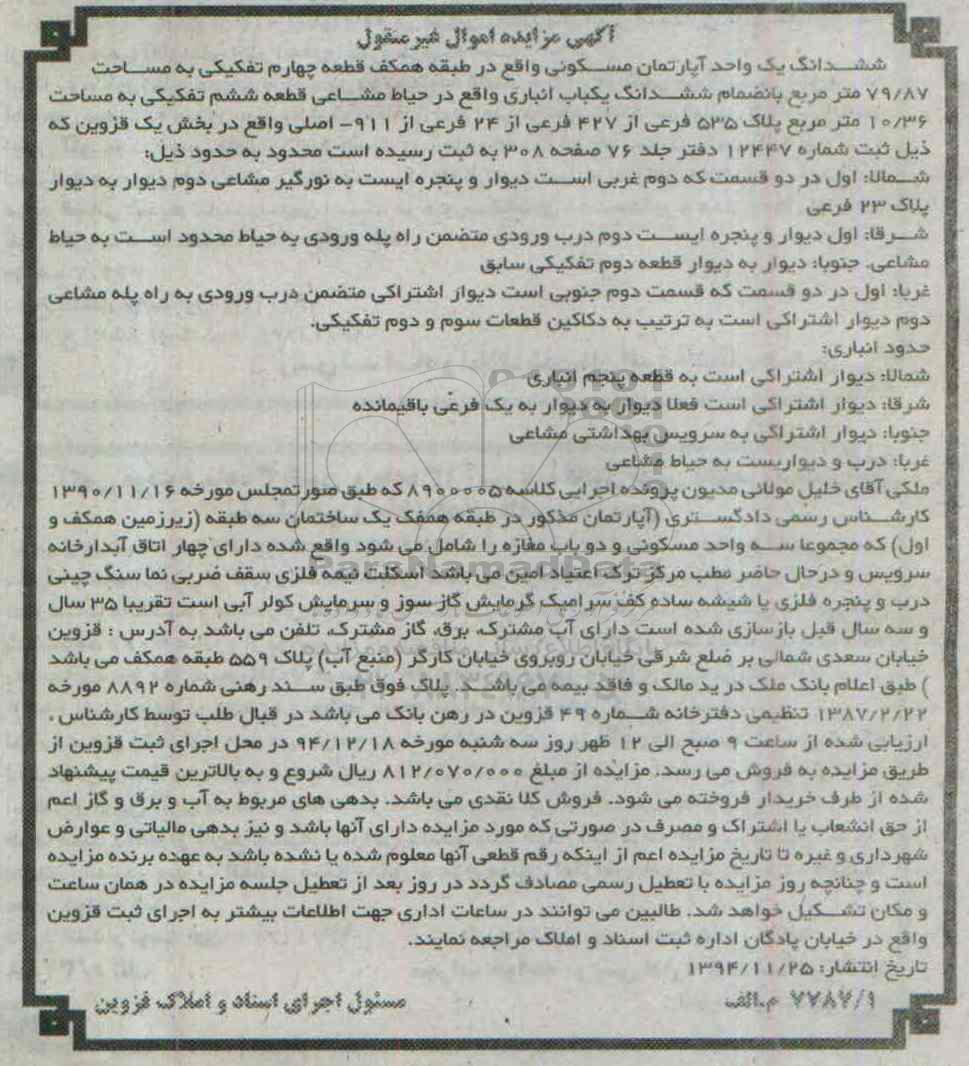 آگهی مزایده اموال غیر منقول
ششدانگ یک واحد آپارتمان مسکونی واقع در طبقه همکف قطعه چهارم تفکیکی به مساحت
۷۹/۸۷ متر مربع بانضمام ششدانگ یکباب انباری واقع در حیاط مشاعی قطعه ششم تفکیکی به مساحت
۱۰/۳۶ متر مربع پلاک ۵۳۵ فرعی از ۴۲۷ فرعی از ۲۴ فرعی از ۹۱۱- اصلی واقع در بخش یک قزوین که
ذیل ثبت شماره ۱۲۴۴۷ دفتر جلد ۷۶ صفحه ۳۰۸ به ثبت رسیده است محدود به حدود ذیل:
شمالا: اول در دو قسمت که دوم غربی است دیوار و پنجره ایست به نورگیر مشاعی دوم دیوار به دیوار
پلاک ۲۳ فرعی
شرقا: اول دیوار و پنجره ایست دوم درب ورودی متضمن راه پله ورودی به حیاط محدود است به حیاط
مشاعی. جنوبا: دیوار به دیوار قطعه دوم تفکیکی سابق
غربا: اول در دو قسمت که قسمت دوم جنوبی است دیوار اشتراکی متضمن درب ورودی به راه پله مشاعی
دوم دیوار اشتراکی است به ترتیب به دکاکین قطعات سوم و دوم تفکیکی.
حدود انباری:
شمالا: دیوار اشتراکی است به قطعه پنجم انباری
شرقا: دیوار اشتراکی است فعلا دیوار به دیوار به یک فرعی باقیمانده
جنوبا: دیوار اشتراکی به سرویس بهداشتی مشاعی
غربا: درب و دیواریست به حیاط مشاعی
ملکی آقای خلیل مولائی مدیون پرونده اجرایی کلاسه ۸۹۰۰۰۰۵ که طبق صورتمجلس مورخه ۱۳۹۰/۱۱/۱۶
کارشناس رسمی دادگستری (آپارتمان مذکور در طبقه همفک یک ساختمان سه طبقه (زیرزمین همکف و
اول) که مجموعا سه واحد مسکونی و دو باب مغازه را شامل می شود واقع شده دارای چهار اتاق آبدارخانه
سرویس و درحال حاضر مطب مرکز ترک اعتیاد امین می باشد اسکلت نیمه فلزی سقف ضربی نما سنگ چینی
درب و پنجره فلزی با شیشه ساده کف سرامیک گرمایش گاز سوز و سرمایش کولر آبی است تقریبا ۳۵ سال
و سه سال قبل بازسازی شده است دارای آب مشترک، برق، گاز مشترک، تلفن می باشد به آدرس : قزوین
خیابان سعدی شمالی بر ضلع شرقی خیابان روبروی خیابان کارگر (منبع آب) پلاک ۵۵۹ طبقه همکف می باشد
) طبق اعلام بانک ملک در ید مالک و فاقد بیمه می باشد. پلاک فوق طبق سند رهنی شماره ۸۸۹۲ مورخه
۱۳۸۷/۲/۲۲ تنظیمی دفترخانه شماره ۴۹ قزوین در رهن بانک می باشد در قبال طلب توسط کارشناس .
ارزیابی شده از ساعت ۹ صبح الی ۱۲ ظهر روز سه شنبه مورخه ۹۴/۱۲/۱۸ در محل اجرای ثبت قزوین از
طریق مزایده به فروش می رسد. مزایده از مبلغ ۸۱۲/۰۷۰/۰۰۰ ریال شروع و به بالاترین قیمت پیشنهاد
شده از طرف خریدار فروخته می شود. فروش کلا نقدی می باشد. بدهی های مربوط به آب و برق و گاز اعم
از حق انشعاب یا اشتراک و مصرف در صورتی که مورد مزایده دارای آنها باشد و نیز بدهی مالیاتی و عوارض
شهرداری و غیره تا تاریخ مزایده اعم از اینکه رقم قطعی آنها معلوم شده یا نشده باشد به عهده برنده مزایده
است و چنانچه روز مزایده با تعطیل رسمی مصادف گردد در روز بعد از تعطیل جلسه مزایده در همان ساعت
و مکان تشکیل خواهد شد. طالبین می توانند در ساعات اداری جهت اطلاعات بیشتر به اجرای ثبت قزوین
واقع در خیابان پادگان اداره ثبت اسناد و املاک مراجعه نمایند.
تاریخ انتشار: ۱۳۹۴/۱۱/۲۵
۷۷۸۷/۱ م.الف
مسئول اجرای اسناد و املاک قزوین
ParsNamadData